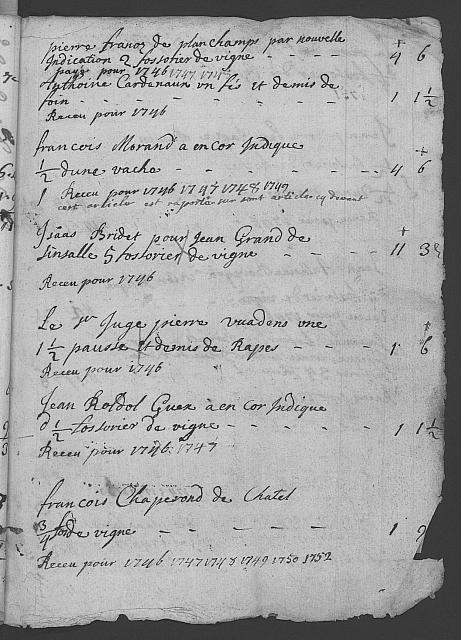 pierre franoz de planchamps par nouvelle
Indication 2 fossorier de vigne - - - 4 6
paye pour 1746 1747 174
Anthoine Cardenaux un fés et demis de
foin - - - - - - 1 1½
Receu pour 1746
francois Morand a en cor Indique
½ dune vache - - - - 4 6
1 Receu pour 1746 1747 1748 1749
cest article est raporté sur sont article cy devent
Isaas Bridet pour Jean Grand de
Sinsalle 5 fossorier de vigne - - - 11 3
Receu pour 1746
Le sr Juge pierre vuadens une
1½ pausse et demis de Rapes - - - 1 6
Receu pour 1746
Jean Rosdol Guex a en cor Indique
d ½ fossorier de vigne - - - - 1 1½
Receu pour 1746 1747
francois Chaperond de Chatel
¾ fos de vigne - - - - 1 9
Receu pour 1746 1747 1748 1749 1750 1752